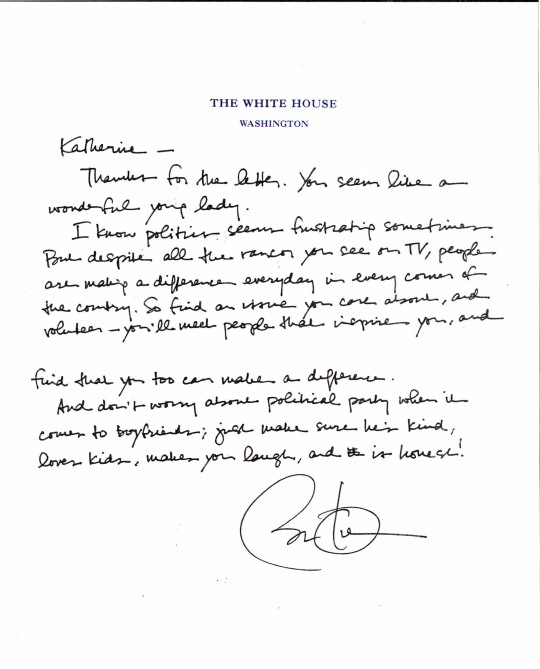 THE WHITE HOUSE
WASHINGTON
Katherine —
Thanks for the letter. You seem like a
wonderful young lady.
I know politics seems frustrating sometimes.
But despite all the rancor you see on TV, people
are making a difference everyday in every corner of
the country. So find an issue you care about, and
volunteer – you'll meet people that inspire you, and
find that you too can make a difference.
And don't worry about political party when it
comes to boyfriends; just make sure he's kind,
loves kids, makes you laugh, and is honest!